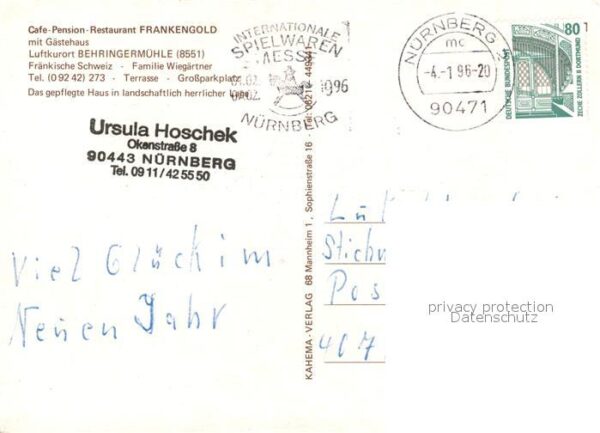 Cafe-Pension-Restaurant FRANKENGOLD
mit Gästehaus
Luftkurort BEHRINGERMÜHLE (8551)
Fränkische Schweiz - Familie Wiegärtner
Tel. (0 92 42) 273 - Terrasse - Großparkplatz
Das gepflegte Haus in landschaftlich herrlicher Lage
INTERNATIONALE
SPIELWAREN
MESSE
1996
NÜRNBERG
NÜRNBERG 2
mc
-4.-1 96-20
90471
80
DEUTSCHE BUNDESPOST
ZECHE ZOLLERN II DORTMUND
Ursula Hoschek
Okenstraße 8
90443 NÜRNBERG
Tel. 09 11 / 42 55 50
Viel Glück im
Neuen Jahr
KAHEMA-VERLAG 68 Mannheim 1, Sophienstraße 16
Pos
407
privacy protection
Datenschutz